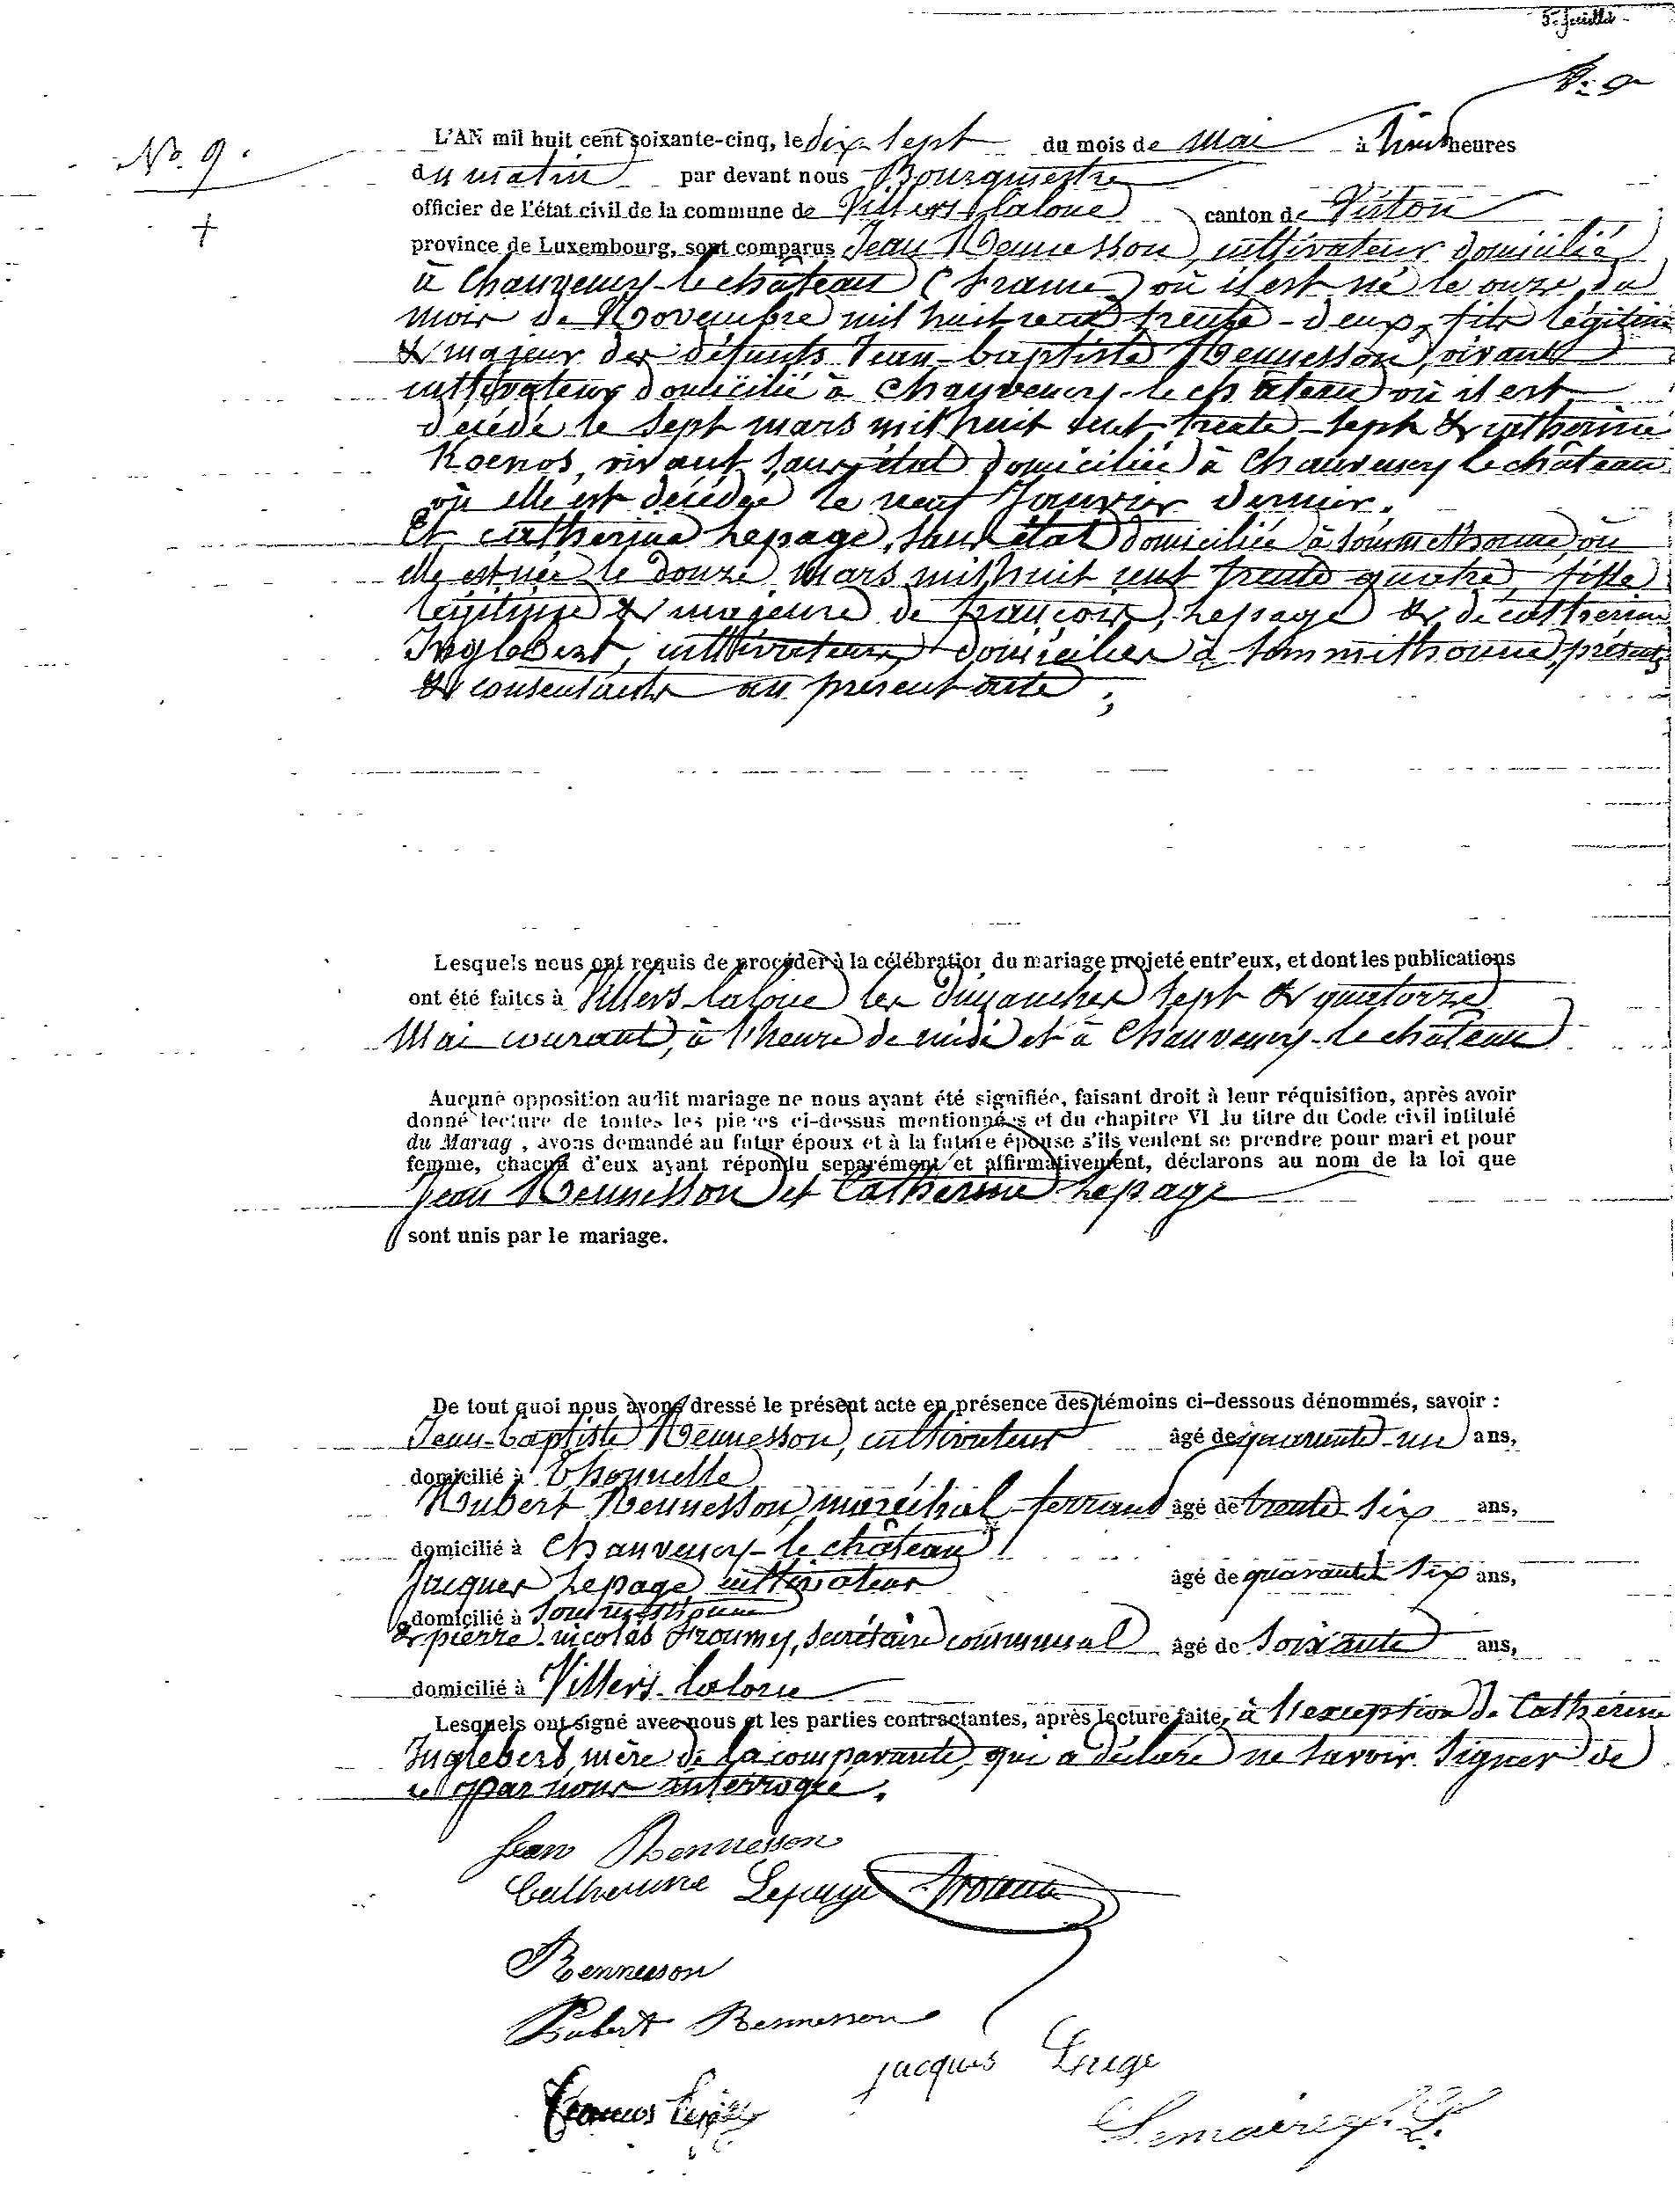 5e feuillet
No. 9
No. 9.
L'AN mil huit cent soixante-cinq, le dix sept du mois de Mai à huit heures
du matin par devant nous Bourgmestre
officier de l'état civil de la commune de Villers-la loue canton de Virton
province de Luxembourg, sont comparus Jean Hennesson, cultivateur domicilié
à Chauvency-le château (France) où il est né le onze du
mois de Novembre mil huit cent trente-deux, fils légitime
& majeur des défunts Jean-baptiste Hennesson, vivant
cultivateur domicilié à Chauvency-le château où il est
décédé le sept mars mil huit cent trente-sept & catherine
Roenos, vivant sans état domiciliée à Chauvency le château
où elle est décédée le neuf Janvier dernier.
Et catherine Lepage, sans état domiciliée à Sommethonne où
elle est née le douze Mars mil huit cent trente quatre, fille
légitime & majeure de françois Lepage & de catherine
Inglebert, cultivateurs domiciliés à Sommethonne, présents
& consentants au présent acte;
Lesquels nous ont requis de procéder à la célébration du mariage projeté entr'eux, et dont les publications
ont été faites à Villers-laloue les dimanches sept & quatorze
Mai courant, à l'heure de midi et à Chauvency-le château
Aucune opposition audit mariage ne nous ayant été signifiée, faisant droit à leur réquisition, après avoir
donné lecture de toutes les pièces ci-dessus mentionnées et du chapitre VI du titre du Code civil intitulé
du Mariag, avons demandé au futur époux et à la future épouse s'ils veulent se prendre pour mari et pour
femme, chacun d'eux ayant répondu separément et affirmativement, déclarons au nom de la loi que
Jean Hennesson et Catherine Lepage
sont unis par le mariage.
De tout quoi nous avons dressé le présent acte en présence des témoins ci-dessous dénommés, savoir :
Jean-baptiste Hennesson, cultivateur âgé de quarante-un ans,
domicilié à Thonnelle
Hubert Hennesson, maréchal-ferrant âgé de trente six ans,
domicilié à Chauvency-le château
Jacques Lepage cultivateur âgé de quarante six ans,
domicilié à Sommethonne
& pierre-nicolas Froumy, secrétaire communal âgé de soixante ans,
domicilié à Villers-laloue
Lesquels ont signé avec nous et les parties contractantes, après lecture faite, à l'exception de Catherine
Inglebert, mère de la comparante, qui a déclaré ne savoir signer de
ce par nous interrogée.
Jean Hennesson
Catherine Lepage Froumy
Hennesson
Hubert Hennesson
jacques Lepage
François Lepage
Lemaire